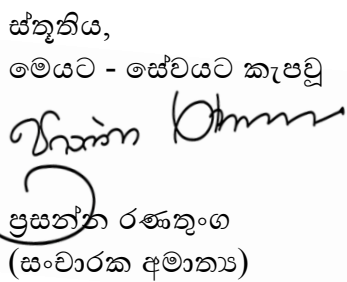 ස්තූතිය,
මෙයට - සේවයට කැපවූ
ප්‍රසන්න රණතුංග
(සංචාරක අමාත්‍ය)